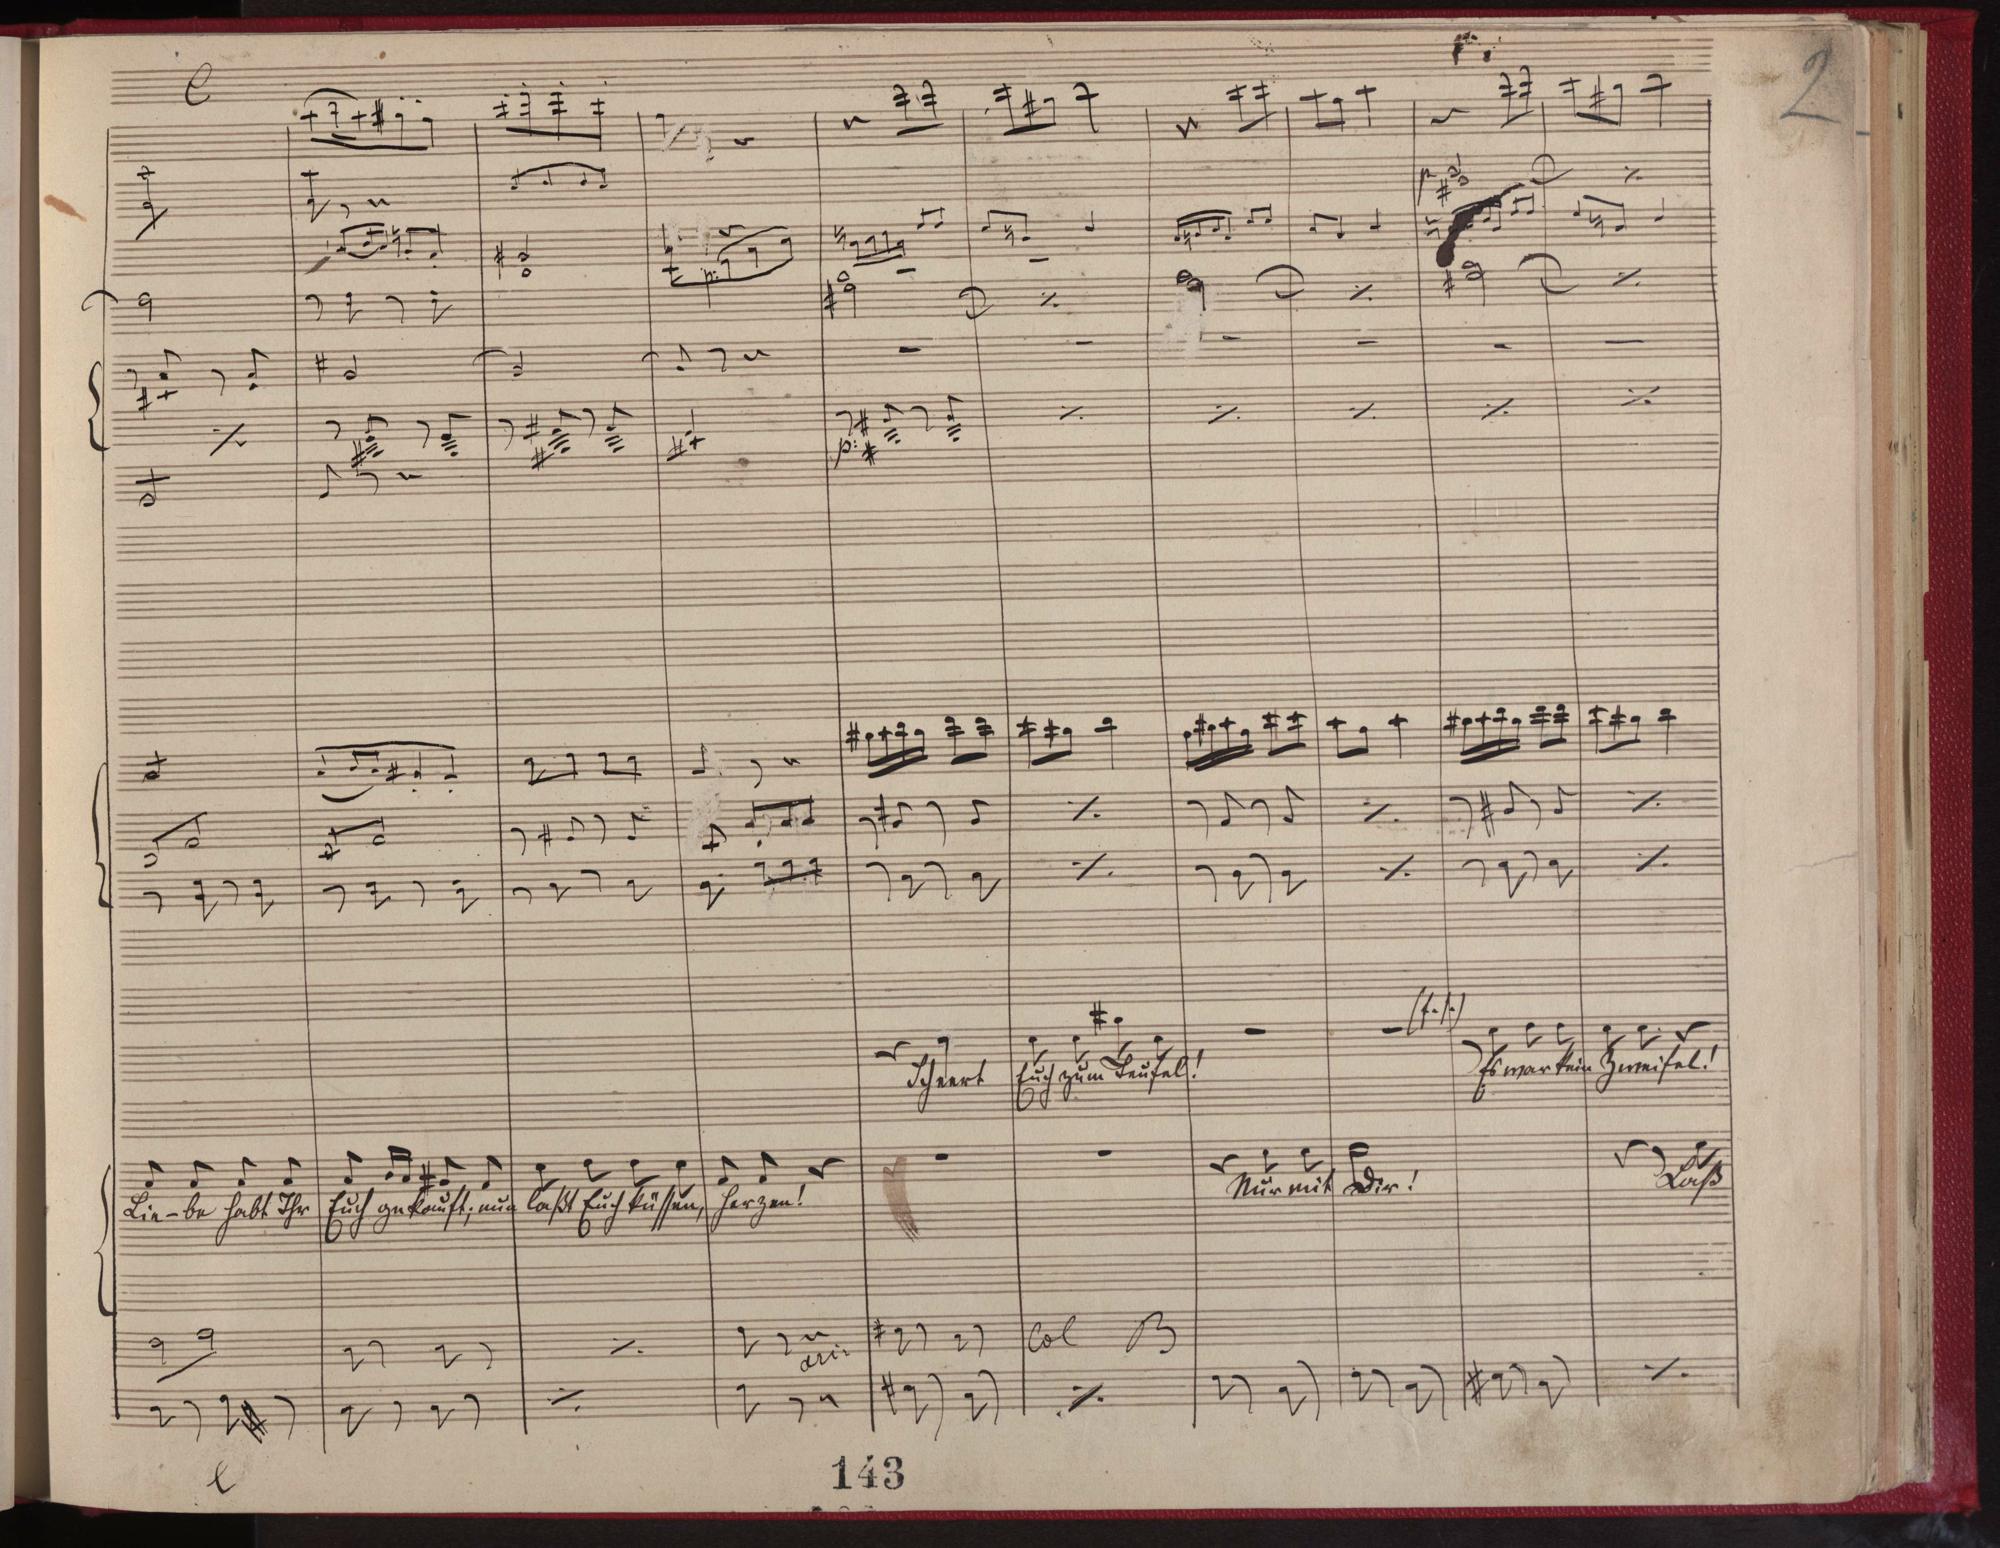 2
p
p:
p:
(f. f.)
Scheert Euch zum Teufel!
Es war kein Zweifel!
Lie-be habt Ihr Euch gekauft; nun laßt Euch küssen, herzen!
Nur mit Dir!
Laß
Col B
143